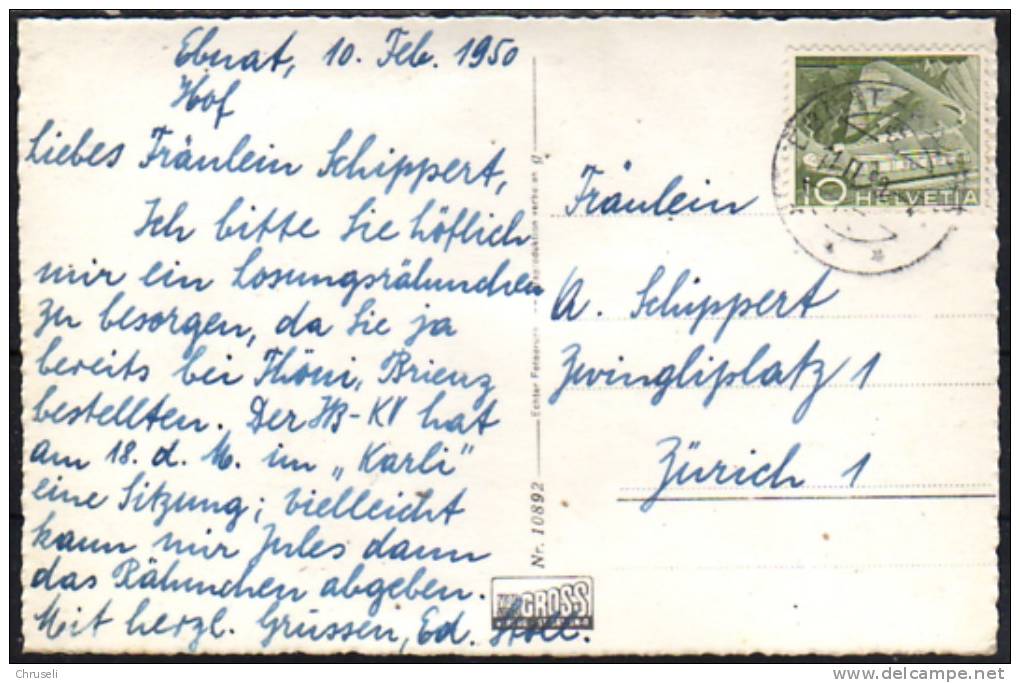 Ebnat, 10. Feb. 1950
Hof
Liebes Fräulein Schippert,
Ich bitte Sie höflich
mir ein Losungsrähmchen
zu besorgen, da Sie ja
bereits bei Thöni, Brienz
bestellten. Der HB-KV hat
am 18. d. M. im „Karli"
eine Sitzung; vielleicht
kann mir Jules dann
das Rähmchen abgeben.
Mit herzl. Grüssen, Ed.
Nr. 10892
GROSS
10 HELVETIA
Fräulein
A. Schippert
Zwingliplatz 1
Zürich 1
Chruseli
www.delcampe.net